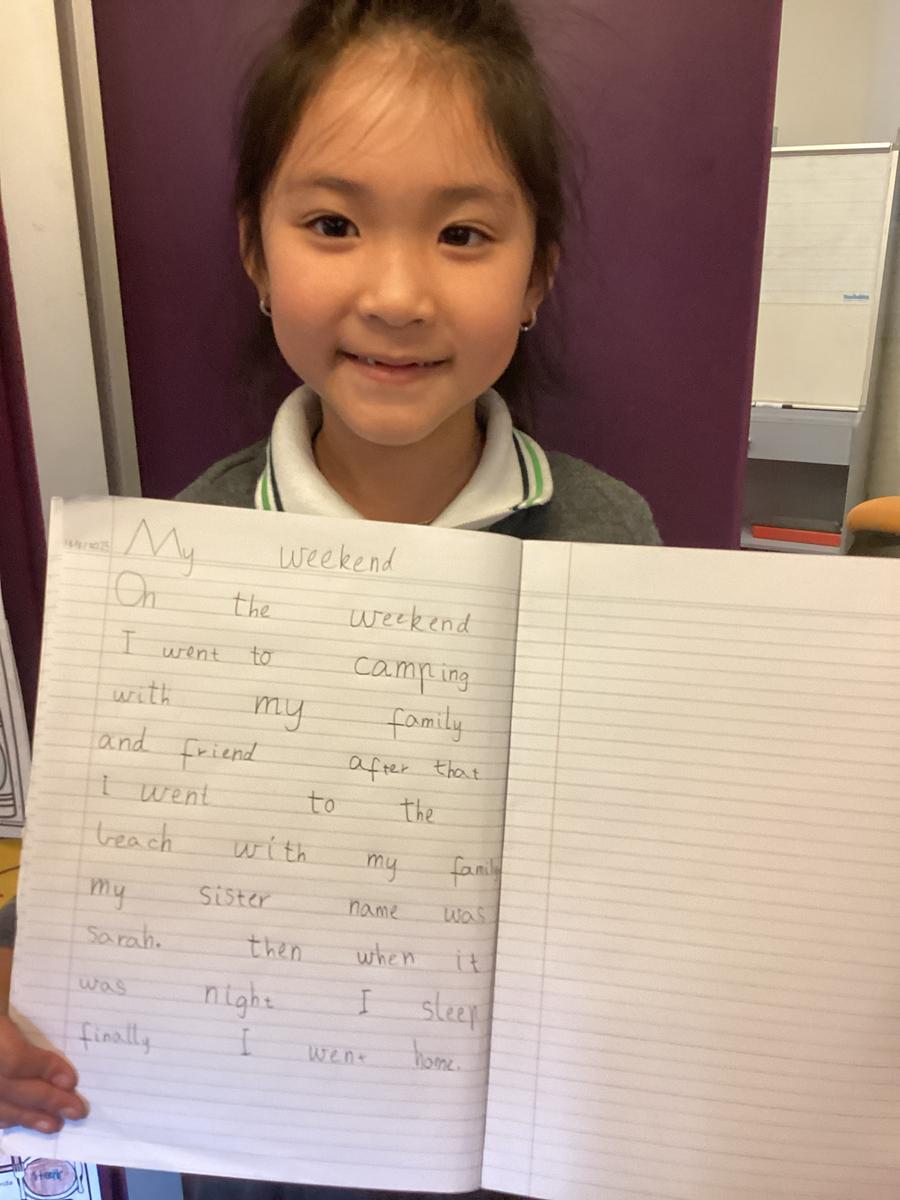 My weekend
On the weekend
I went to camping
with my family
and friend after that
I went to the
beach with my family
my sister name was
sarah. then when it
was night I sleep
finally I went home.